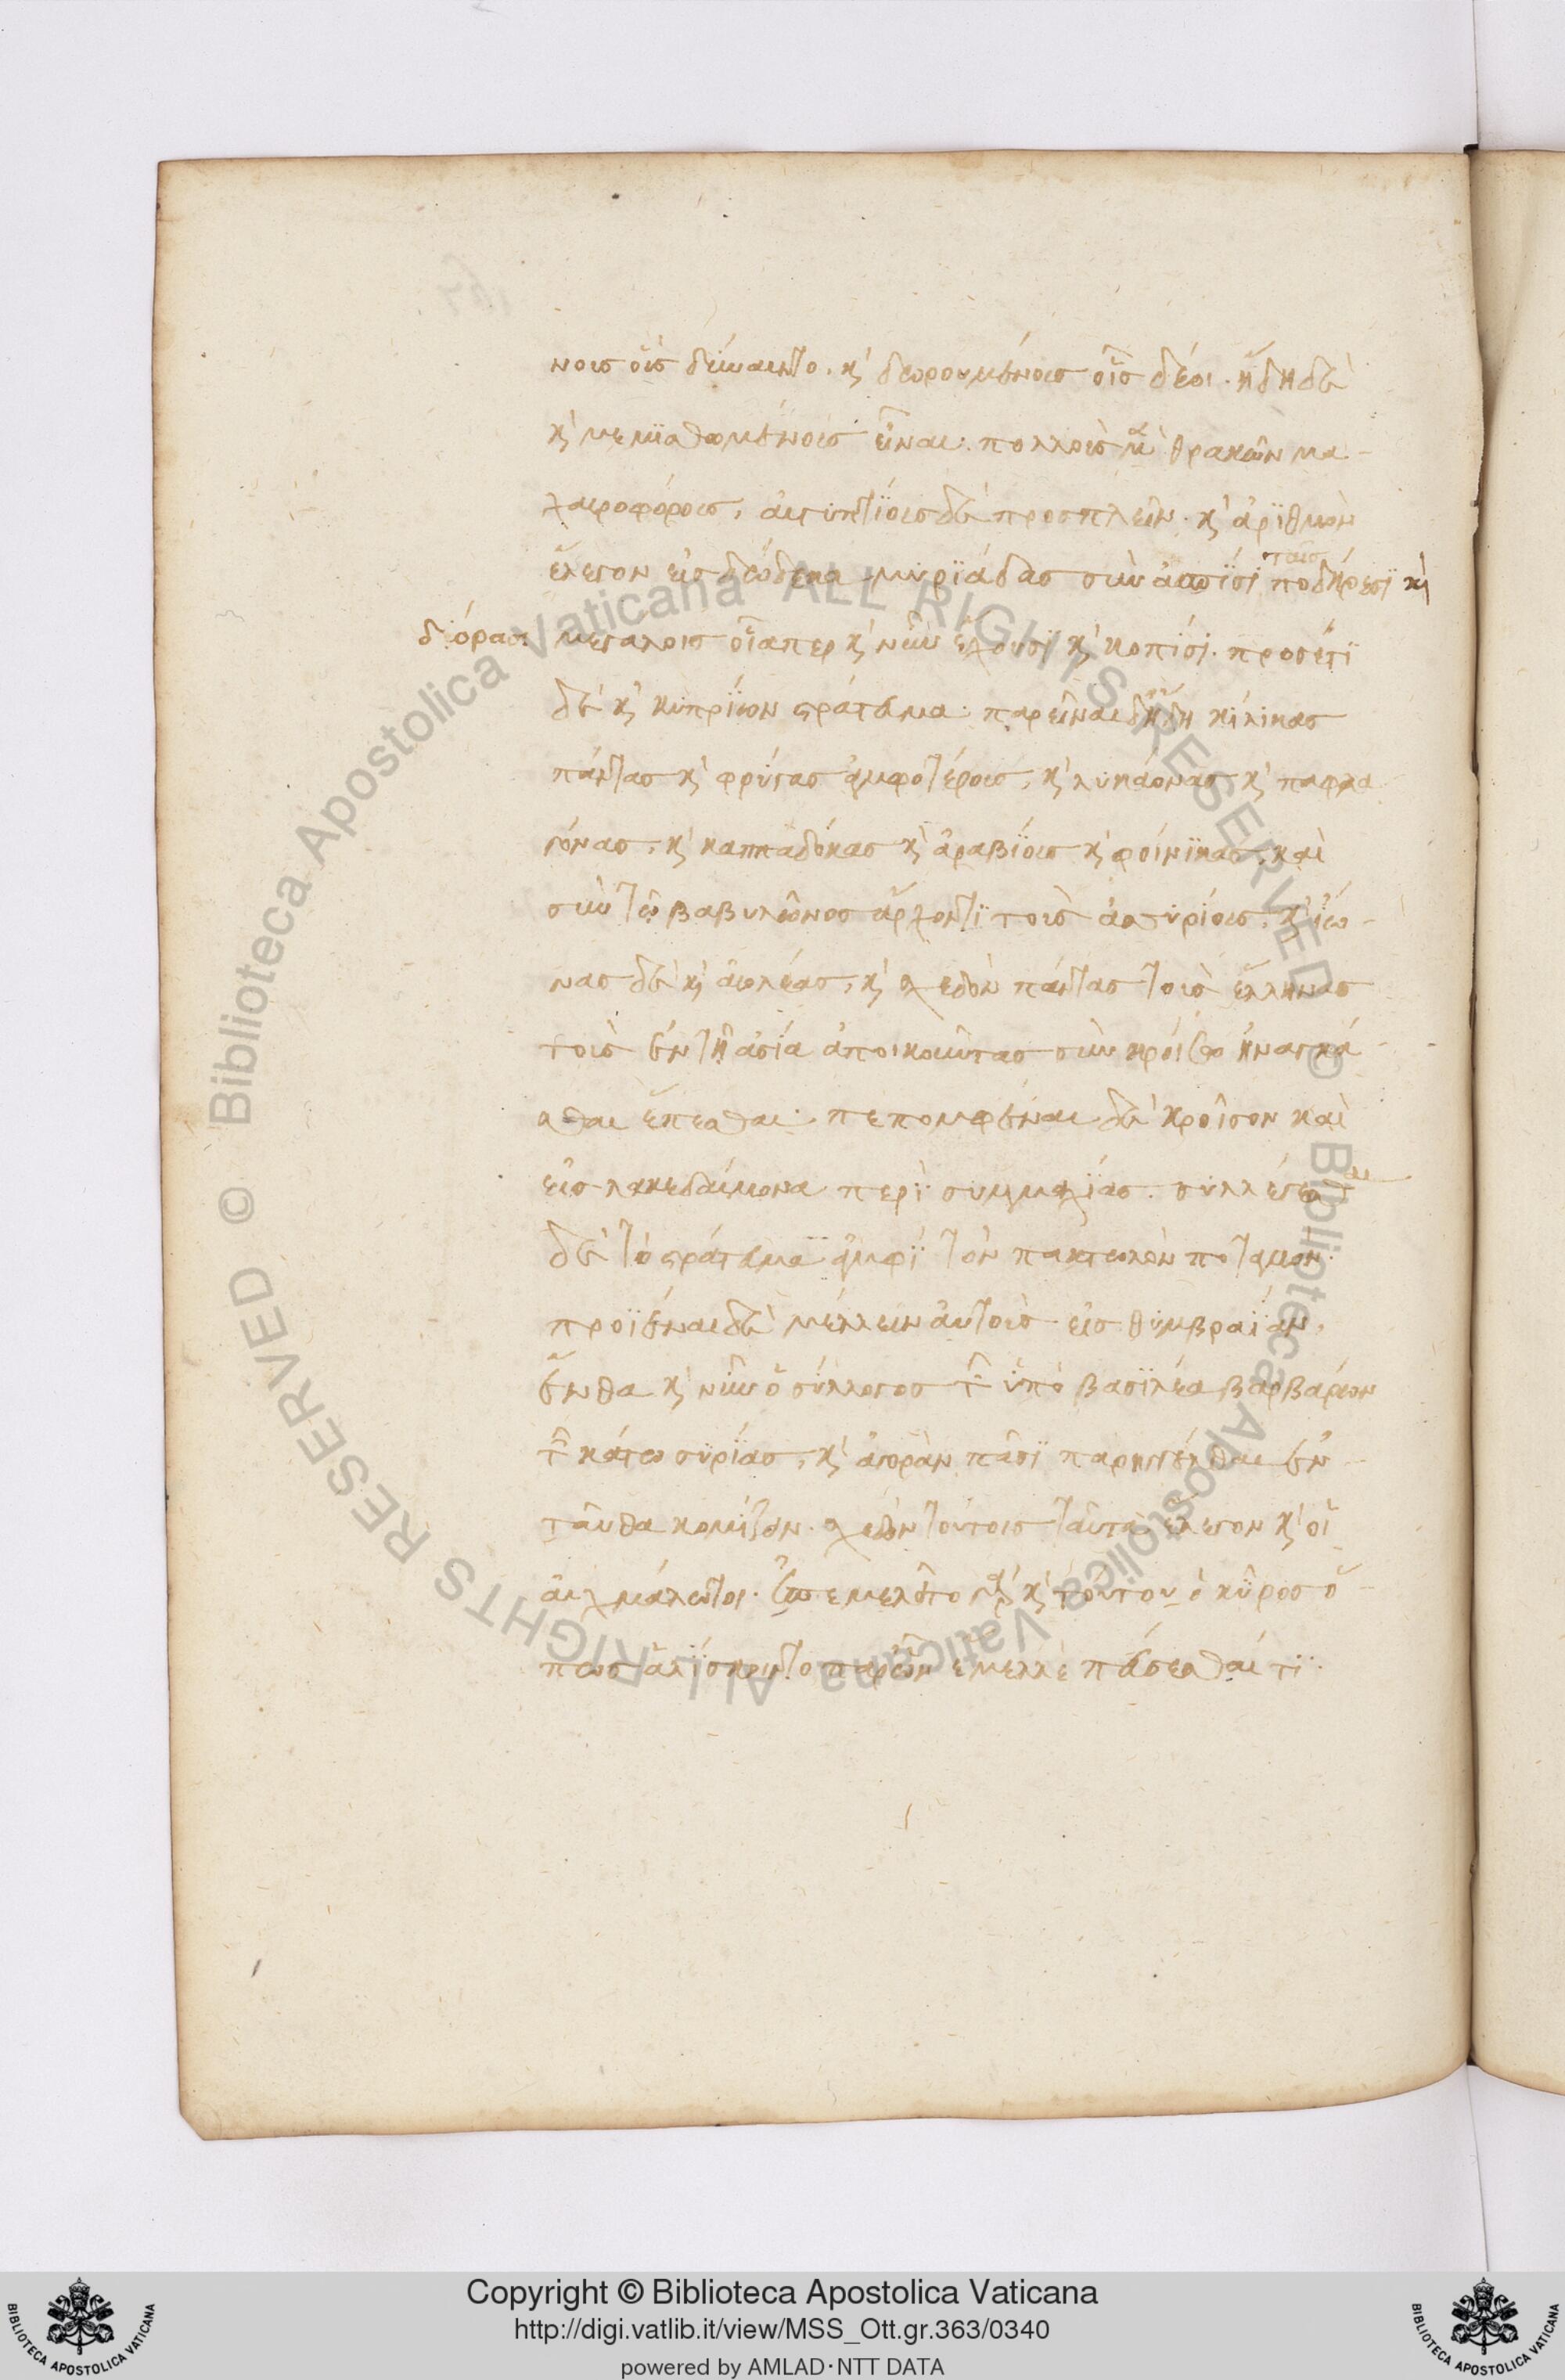 νοις οὓς δύναιντο. κ̀ δωρουμένους οἷς δέοι. ἤδη δὲ
κ̀ μεμισθωμένους εἶναι· πολλοὺς μ̀ θρακῶν μα-
χαιροφόρους, αἰγυπτίους δὲ προσπλεῖν. κ̀ ἀριθμὸν
ἔλεγον εἰς δώδεκα μυριάδας σὺν ἀσπίσι ταῖς ποδήρεσι κ̀
δόρασι μεγάλοις οἷάπερ κ̀ νῦν ἔχουσι κ̀ κοπίσι. προσέτι
δὲ κ̀ κυπρίων στράτευμα· παρεῖναι δ' ἤδη κίλικας
πάντας κ̀ φρύγας ἀμφοτέρους, κ̀ λυκάονας κ̀ παφλα
γόνας, κ̀ καππαδόκας κ̀ ἀραβίους κ̀ φοίνικας, καὶ
σὺν τῶ βαβυλῶνος ἄρχοντι τοὺς ἀσσυρίους, κ̀ ἴω-
νας δὲ κ̀ αἰολέας, κ̀ σχεδὸν πάντας τοὺς ἕλληνας
τοὺς ἐν τῆ ἀσία ἀποικοῦντας σὺν κροίσω ἠναγκά-
σθαι ἕπεσθαι· πεπομφέναι δὲ κροῖσον καὶ
εἰς λακεδαίμονα περὶ συμμαχίας. συλλέγεσθαι
δὲ τὸ στράτευμα ἀμφὶ τὸν πακτωλὸν ποταμόν·
προϊέναι δὲ μέλλειν αὐτοὺς εἰς θύμβραιαν,
ἔνθα κ̀ νῦν ὁ σύλλογος τῶν ὑπὸ βασιλέα βαρβάρων
τῶν κάτω συρίας, κ̀ ἀγορὰν πᾶσι παρηγγέλθαι ἐν-
ταῦθα κομίζειν. σχεδὸν τούτοις ταῦτα ἔλεγον κ̀ οἱ
αἰχμάλωτοι. ἐπεμελεῖτο γὰρ κ̀ τούτου ὁ κῦρος ὅ-
πως ἁλίσκοιντο παρ' ὧν ἔμελλε πεύσεσθαί τι.
Copyright © Biblioteca Apostolica Vaticana
http://digi.vatlib.it/view/MSS_Ott.gr.363/0340
powered by AMLAD·NTT DATA
BIBLIOTECA APOSTOLICA VATICANA
BIBLIOTECA APOSTOLICA VATICANA
© Biblioteca Apostolica Vaticana ALL RIGHTS RESERVED
© Biblioteca Apostolica Vaticana ALL RIGHTS RESERVED